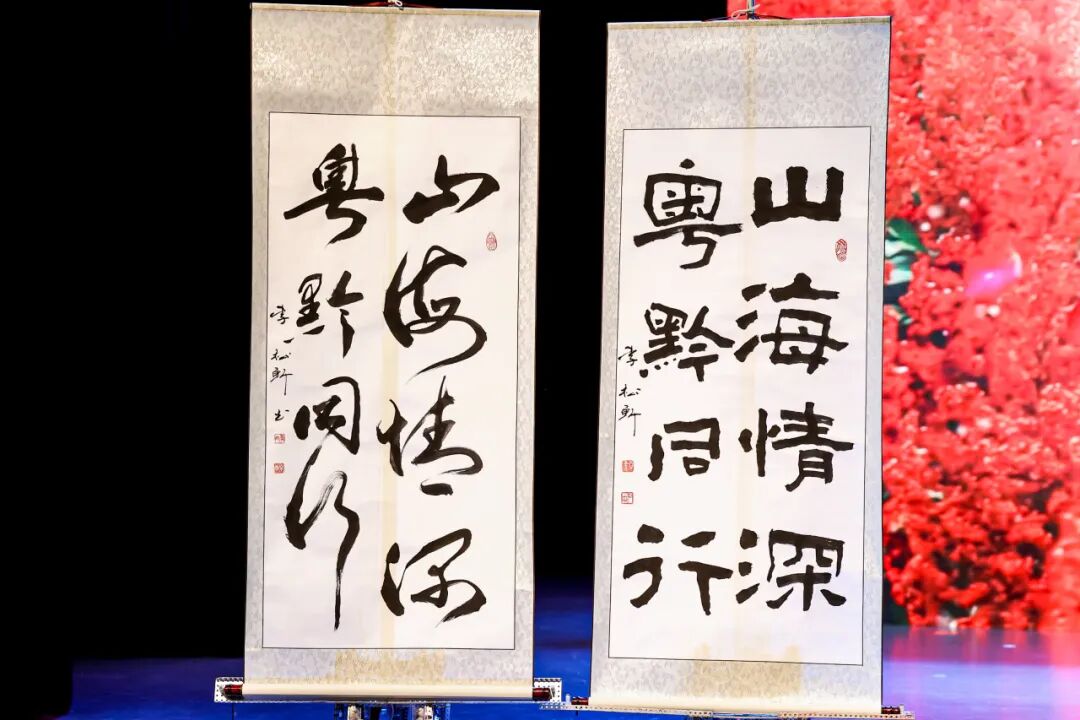 山海情深
粤黔同行
李松轩书
山海情深
粤黔同行
李松轩